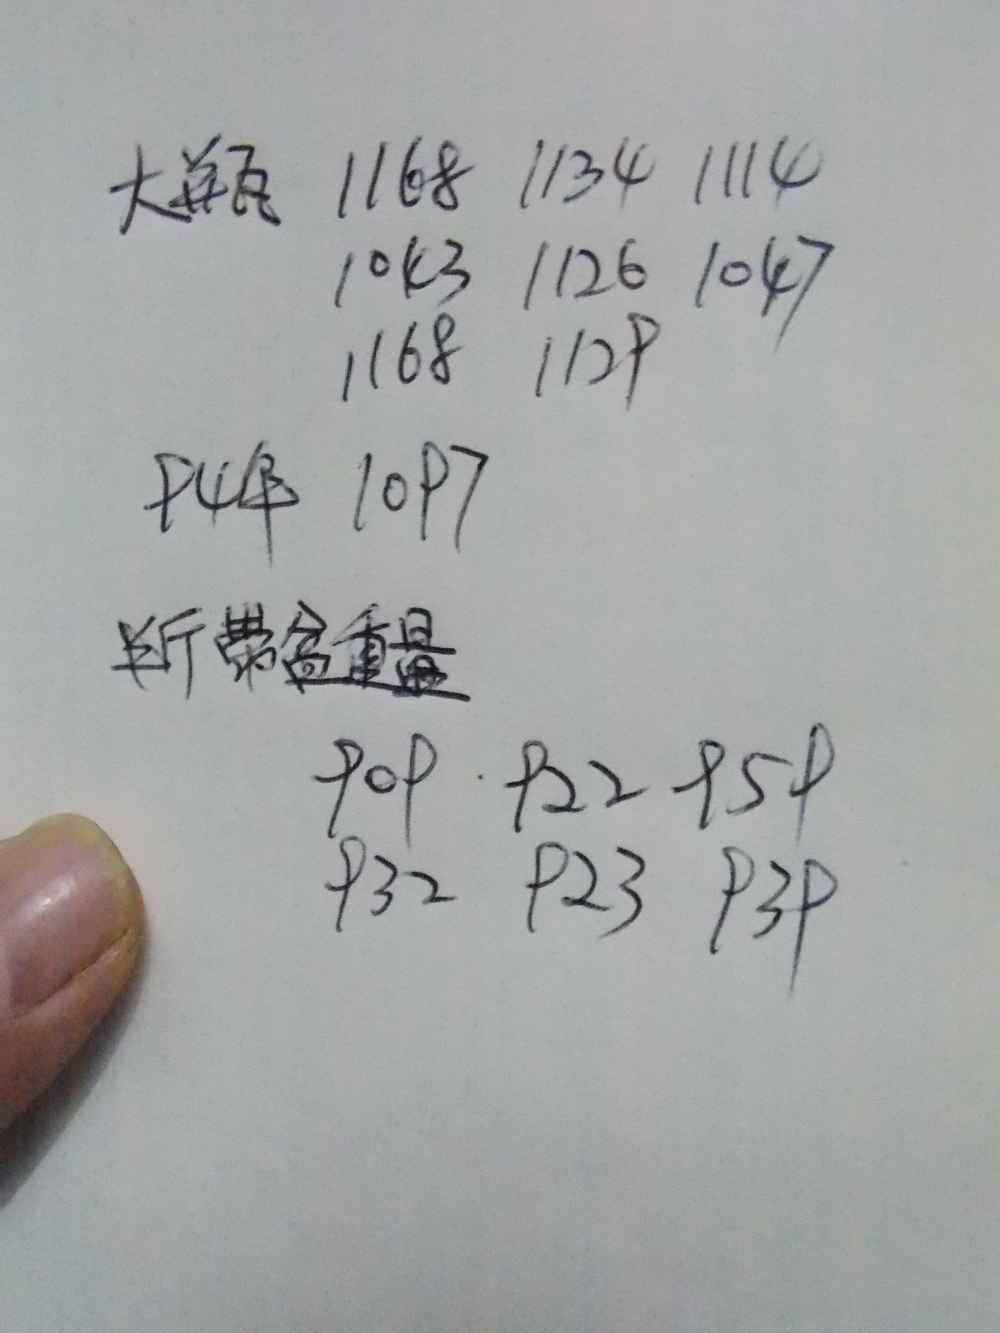 大瓶 1168 1134 1114
1043 1126 1047
1168 1129
94年 1097
半斤带盒重量
909 922 959
932 923 939